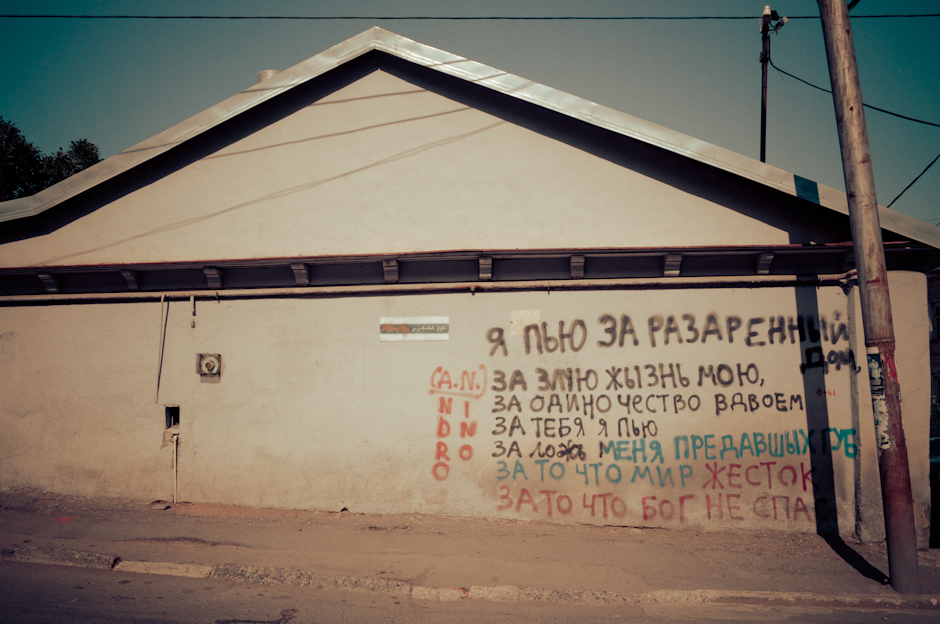 Я ПЬЮ ЗА РАЗАРЕННЫЙ
ДОМ,
ЗА ЗЛУЮ ЖЫЗНЬ МОЮ,
ЗА ОДИНОЧЕСТВО ВДВОЕМ
ЗА ТЕБЯ Я ПЬЮ
ЗА ЛОЖЬ МЕНЯ ПРЕДАВШЫХ ГУБ
ЗА ТО ЧТО МИР ЖЕСТОК
ЗА ТО ЧТО БОГ НЕ СПАС
(A.N.)
NDRO
INO